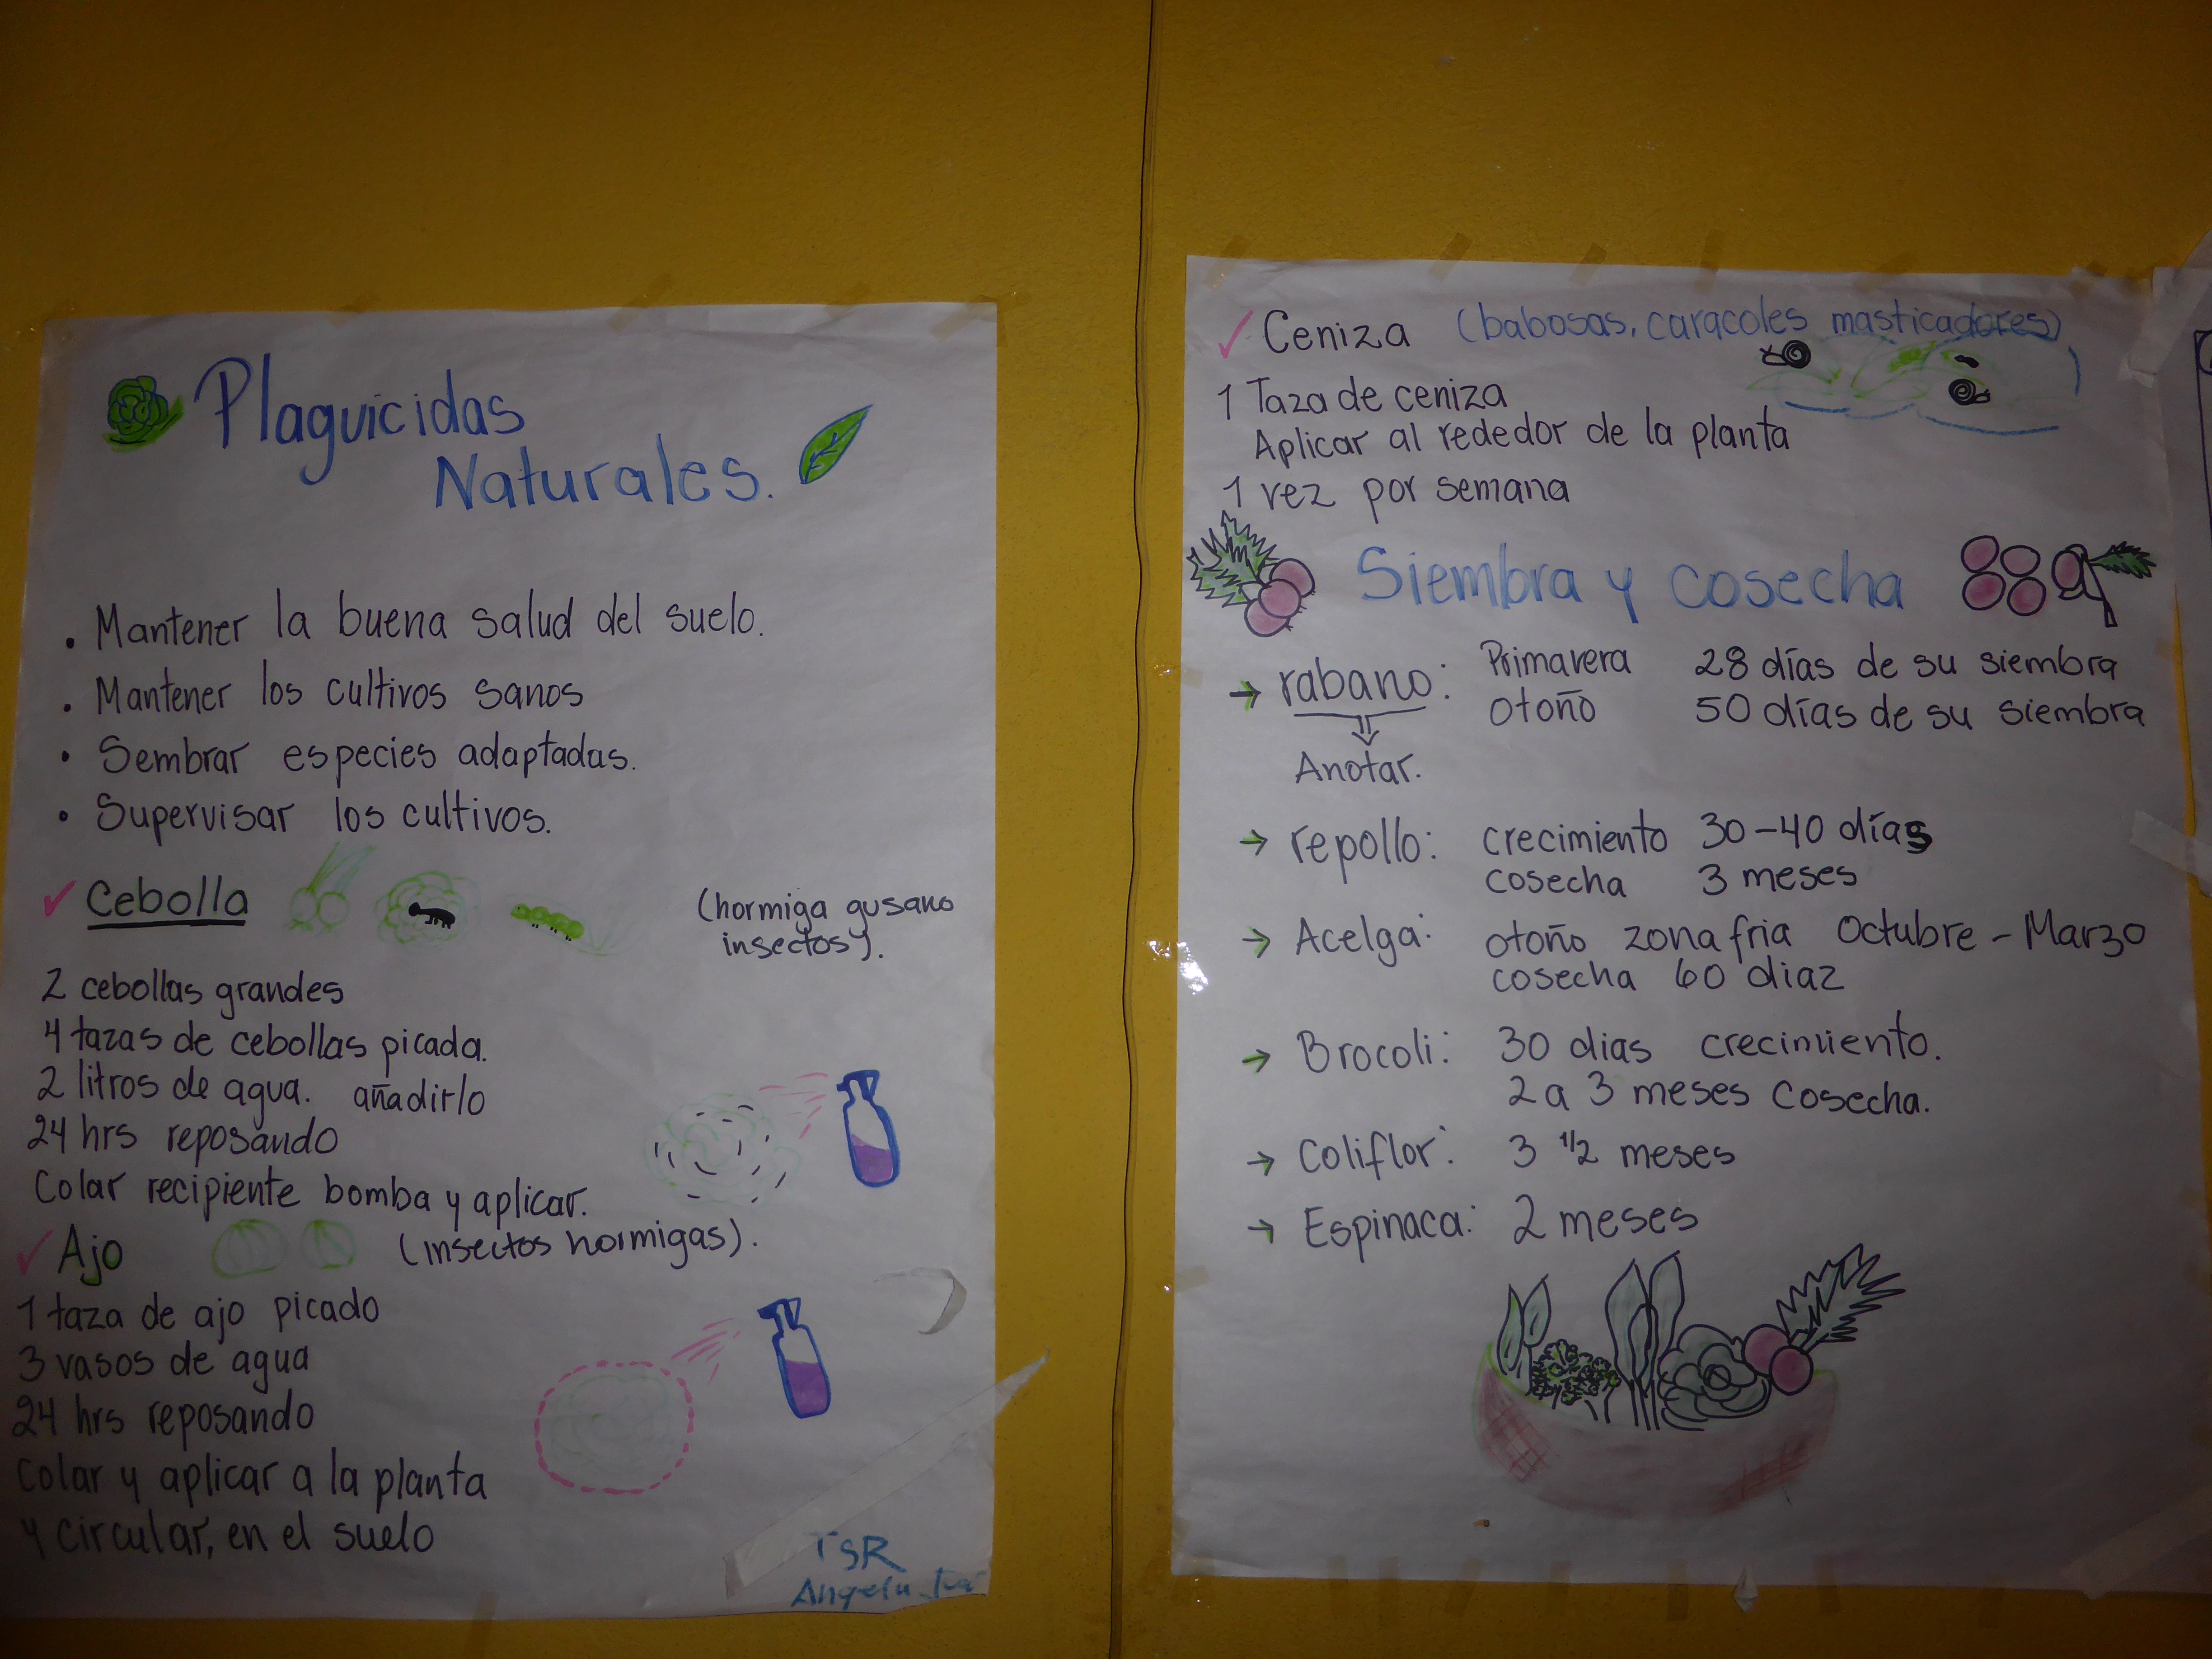 Plaguicidas
Naturales.
. Mantener la buena salud del suelo.
. Mantener los cultivos sanos
. Sembrar especies adaptadas.
. Supervisar los cultivos.
✓ Cebolla (hormiga gusano
insectos).
2 cebollas grandes
4 tazas de cebollas picada.
2 litros de agua. añadirlo
24 hrs reposando
Colar recipiente bomba y aplicar.
✓ Ajo (insectos hormigas).
1 taza de ajo picado
3 vasos de agua
24 hrs reposando
Colar y aplicar a la planta
y circular, en el suelo
TSR
✓ Ceniza (babosas, caracoles masticadores)
1 Taza de ceniza
Aplicar al rededor de la planta
1 vez por semana
Siembra y cosecha
→ rabano: Primavera 28 días de su siembra
otoño 50 días de su siembra
⇓
Anotar.
→ repollo: crecimiento 30-40 días
cosecha 3 meses
→ Acelga: otoño zona fria Octubre - Marzo
cosecha 60 diaz
→ Brocoli: 30 dias crecimiento.
2 a 3 meses Cosecha.
→ Coliflor: 3 1/2 meses
→ Espinaca: 2 meses